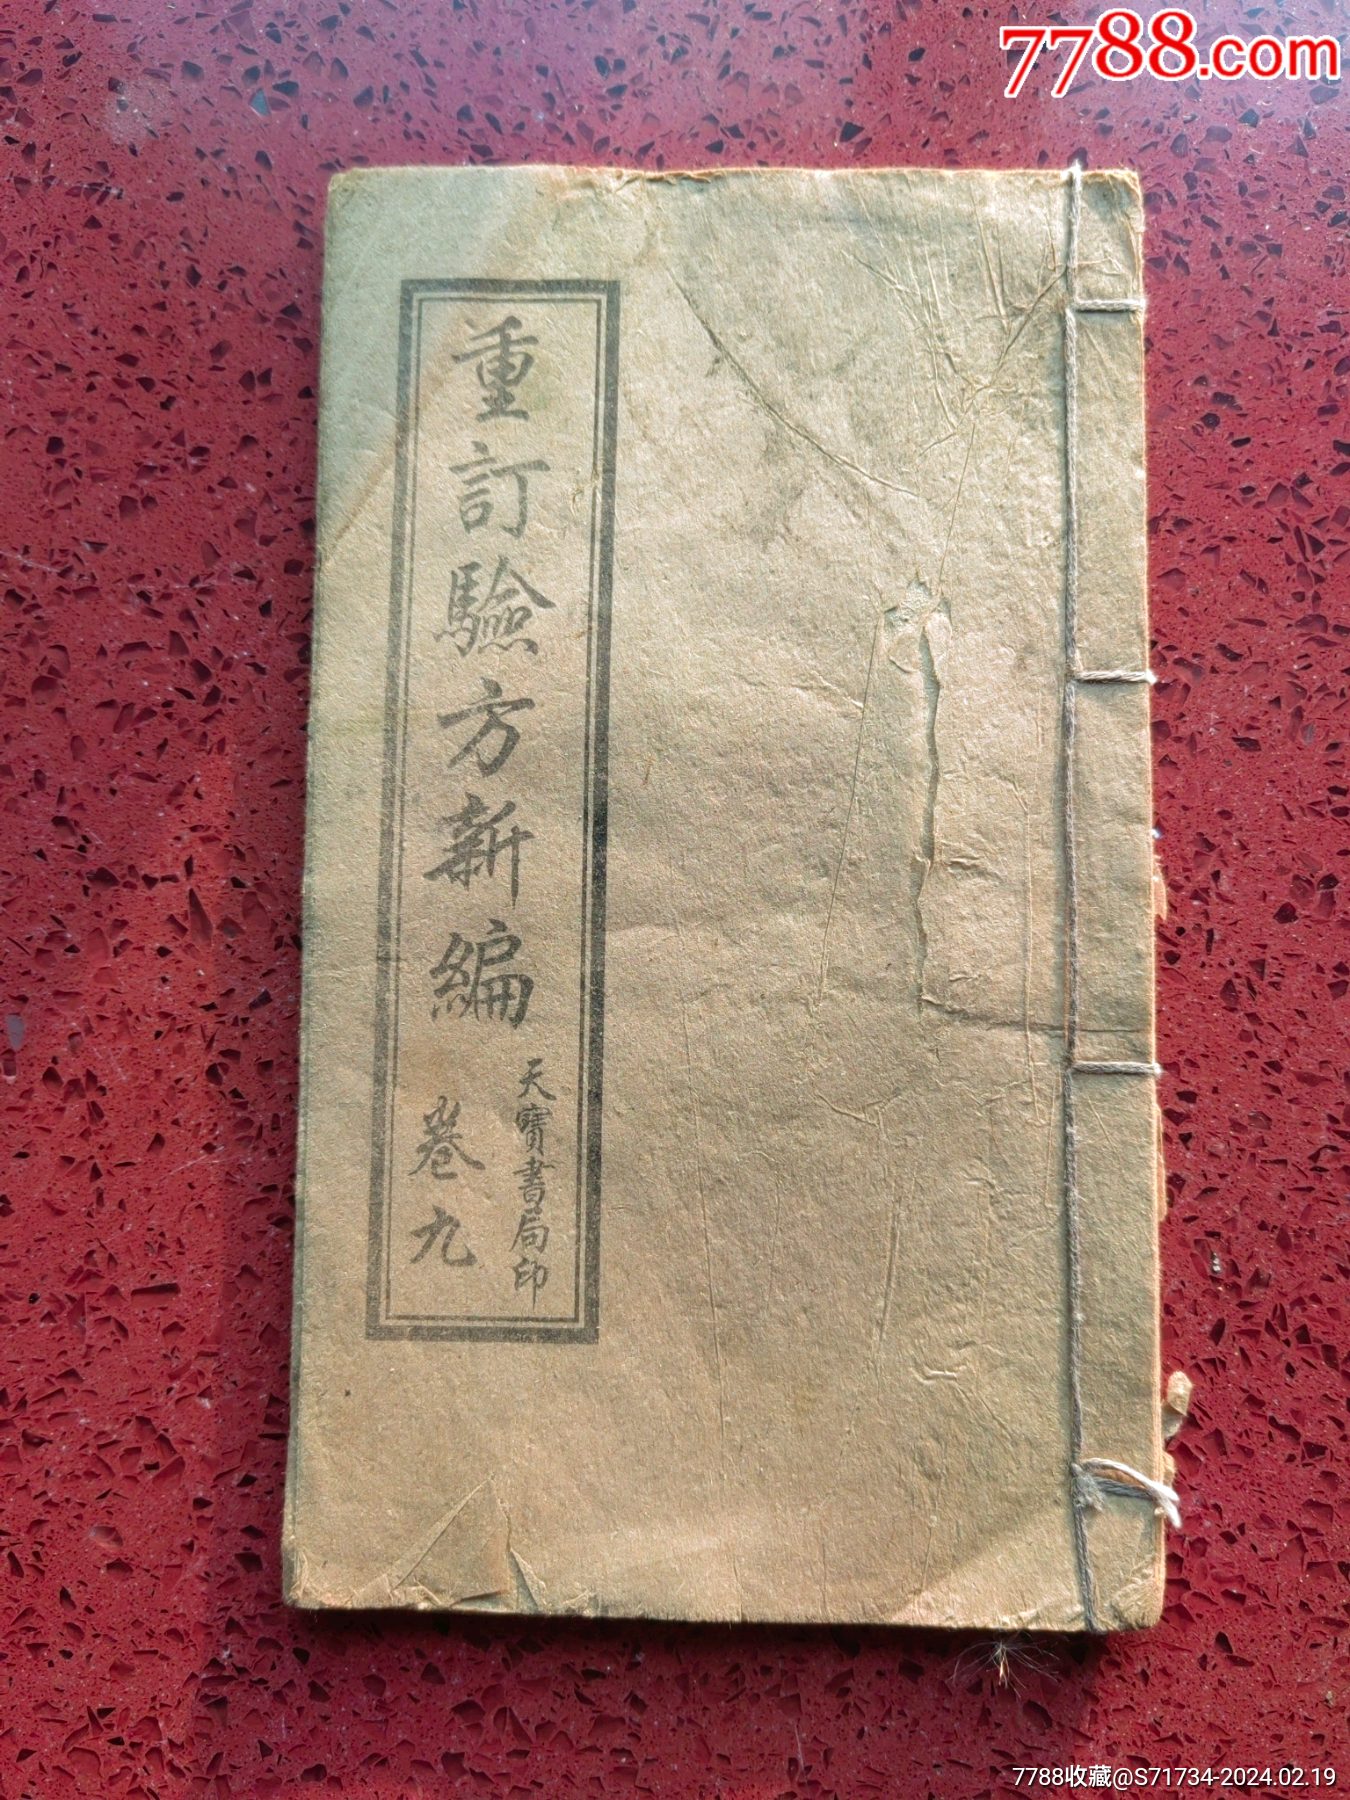 7788.com
重訂驗方新編
天寶書局印
卷九
7788收藏@S71734-2024.02.19